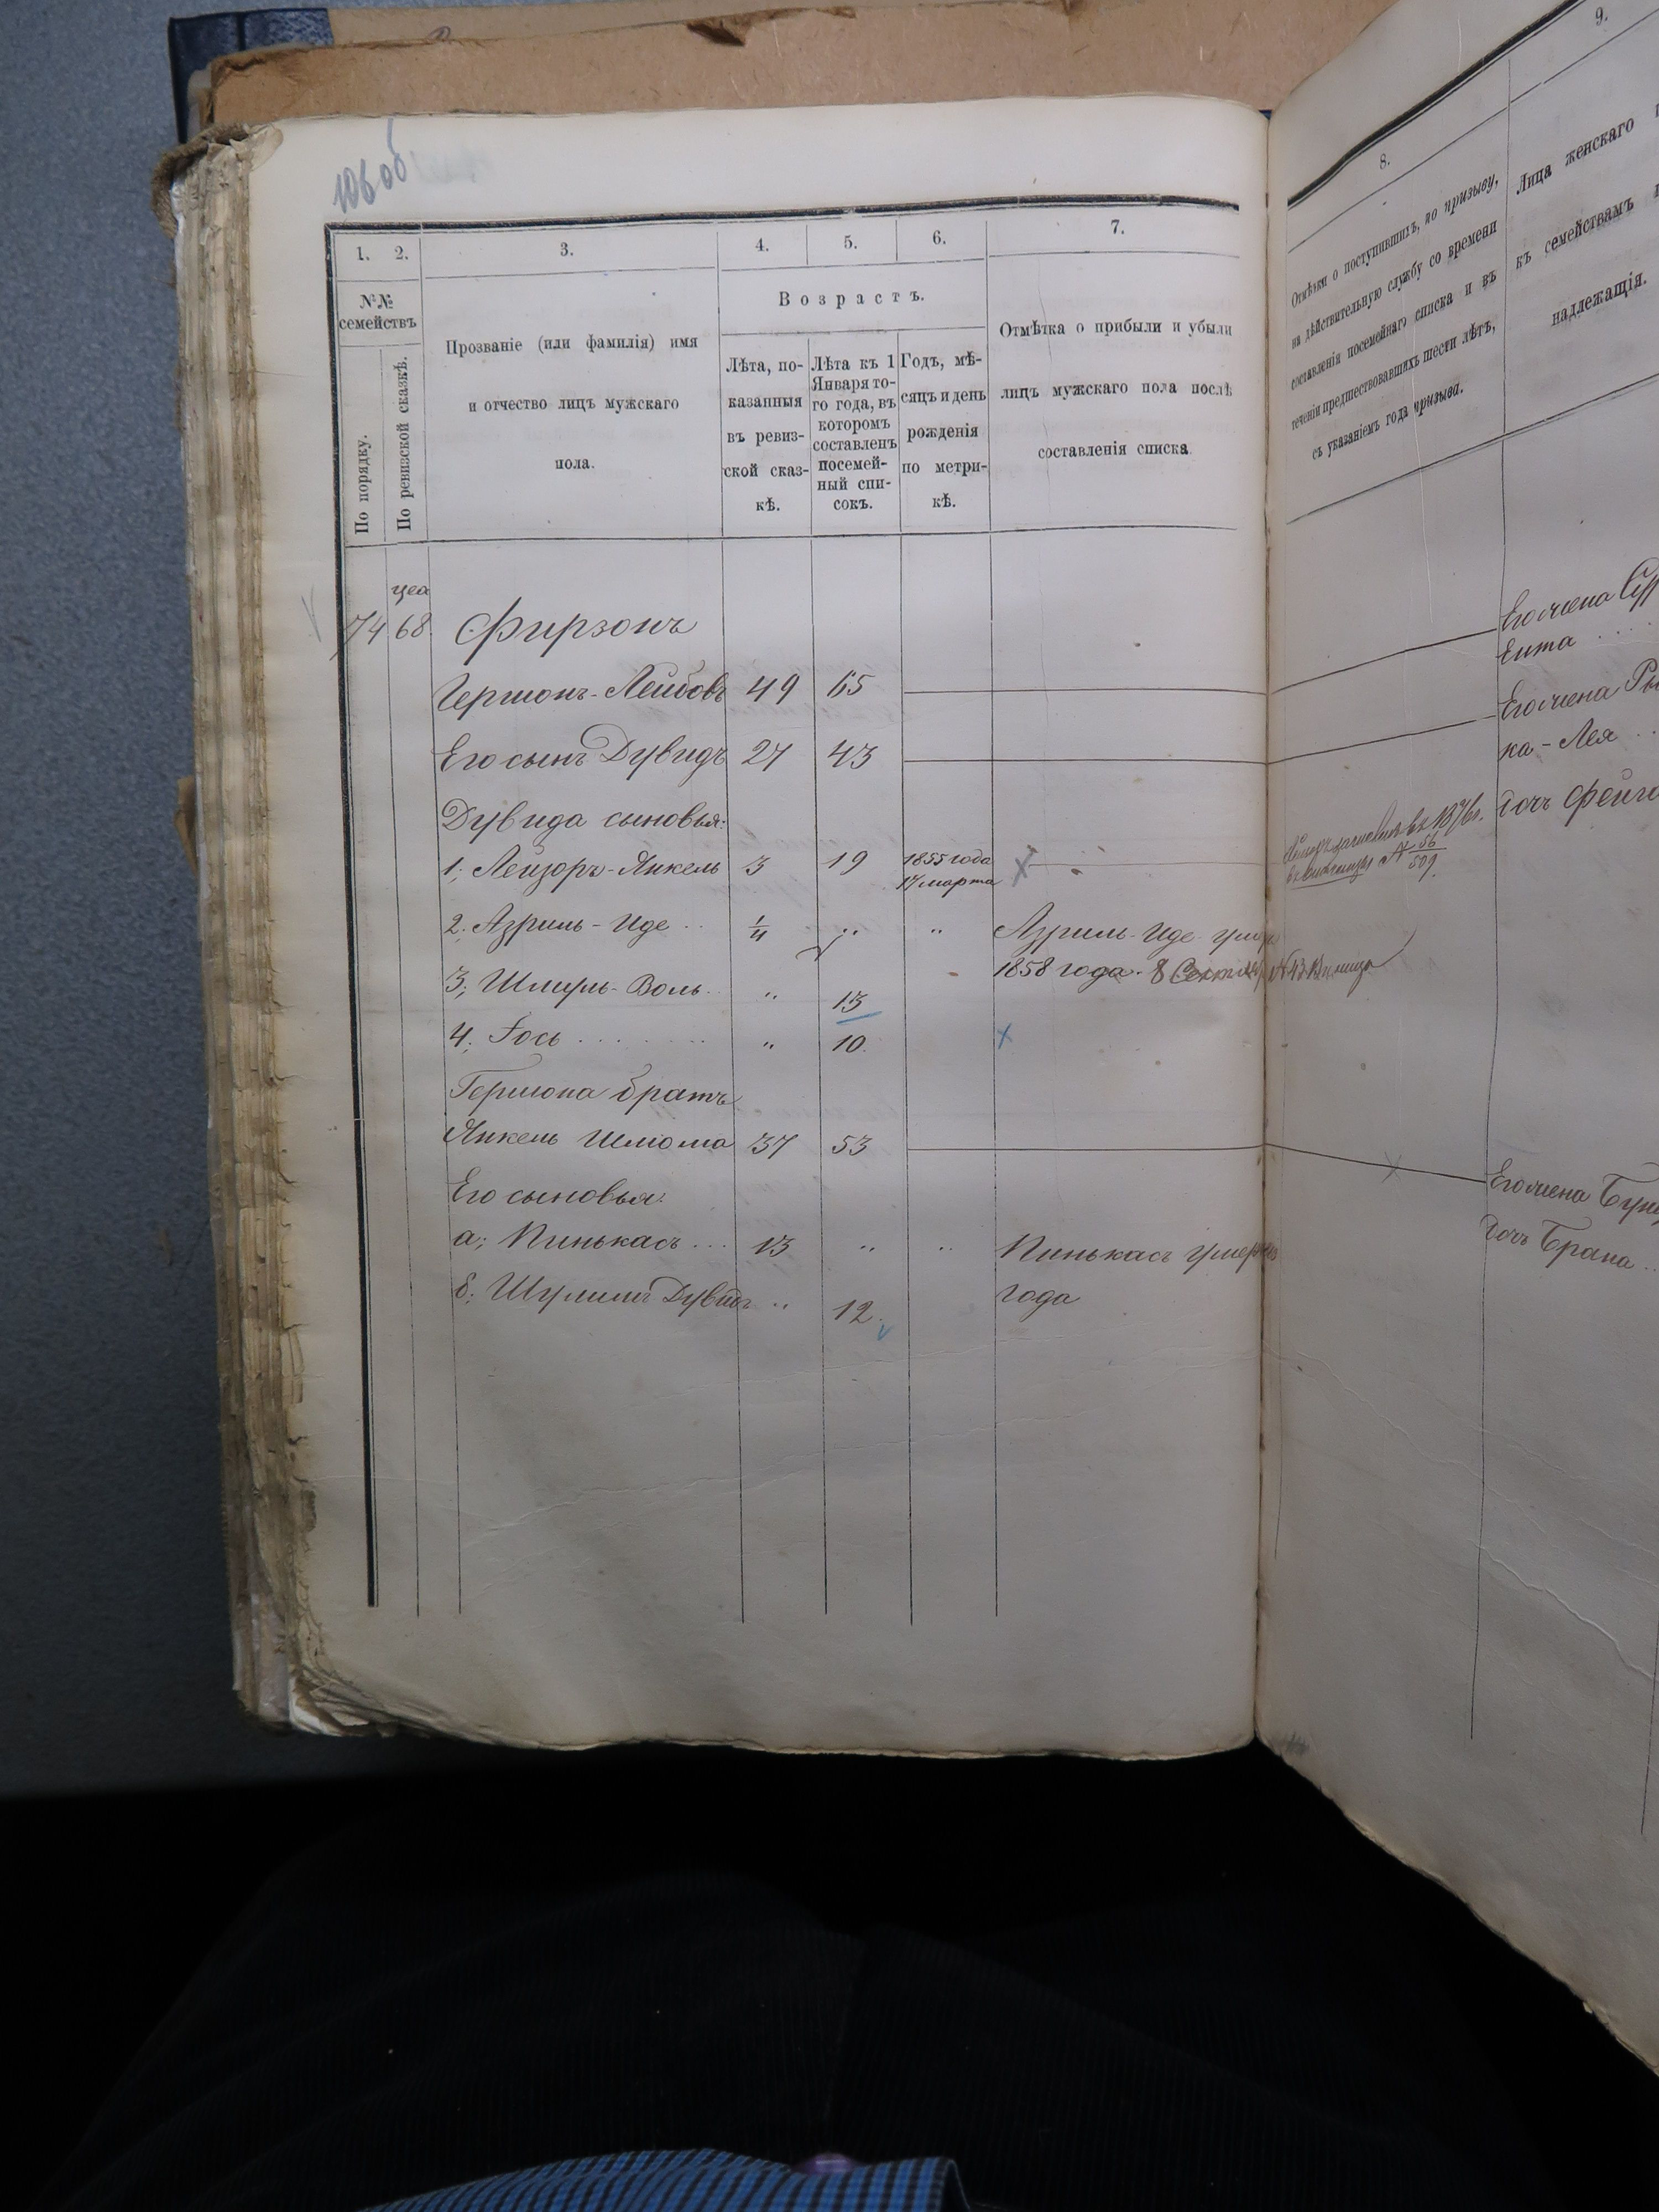 106 об
1. 2. 3. 4. 5. 6. 7.
№№ семействъ
По порядку.
По ревизской сказкѣ.
Прозваніе (или фамилія) имя
и отчество лицъ мужскаго
пола.
Возрастъ.
Лѣта, по-
казанныя
въ ревиз-
ской сказ-
кѣ.
Лѣта къ 1
Января то-
го года, въ
которомъ
составленъ
посемей-
ный спи-
сокъ.
Годъ, мѣ-
сяцъ и день
рожденія
по метри-
кѣ.
Отмѣтка о прибыли и убыли
лицъ мужскаго пола послѣ
составленія списка.
74 68 Фирзонъ
Гершонъ-Лейбовъ 49 65
Его сынъ Дувидъ 27 43
Дувида сыновья:
1; Лейзоръ-Янкель 3 19 1855 года
17 марта
2; Азриль-Иде .. 1/4 " " Азриль-Иде
1858 года 8
3; Шмуль-Воль " 13
4; Іось " 10
Гершона братъ
Янкель Шлiома 37 53
Его сыновья:
а; Пинькасъ ... 13 " " Пинькасъ
года
б; Дувидъ " 12
8.
Отмѣтки о поступившихъ, по призыву,
на дѣйствительную службу со времени
составленія посемейнаго списка и въ
теченіи предшествовавшихъ шести лѣтъ,
съ указаніемъ года призыва.
въ 1876г.
№ 56
509
9.
Лица женскаго
къ семействамъ
надлежащія.
Его жена
Ента ....
Его жена
ка-Лея ..
дочь Фейга
Его жена
дочь Брана ..